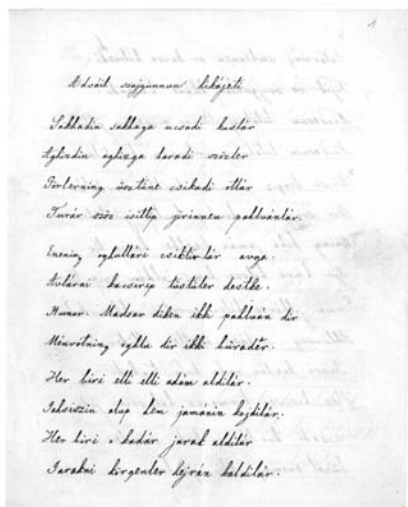 1
Adsáib szajgünnün hikájeti
Sakkadin sakkaga ucsadi kuslár
Aghzindin aghizga baradi szözler
Törlerning üsztüne csikadi otlár
Turár szöz isittip jirinnen pahlvánlár.
Enening oghullári csiktirlár avga.
Avlárni kacsirip tüstüler destke.
Hunor. Madsar diken ikki pahlván dir
Menrótning oghlu dir ikki bürader.
Her biri elli elli adám aldilár.
Jaksiszin alup hem jamánin kojdilár.
Her biri o kadár jarak aldilár
Jarakni körgenler hejrán kaldilár.